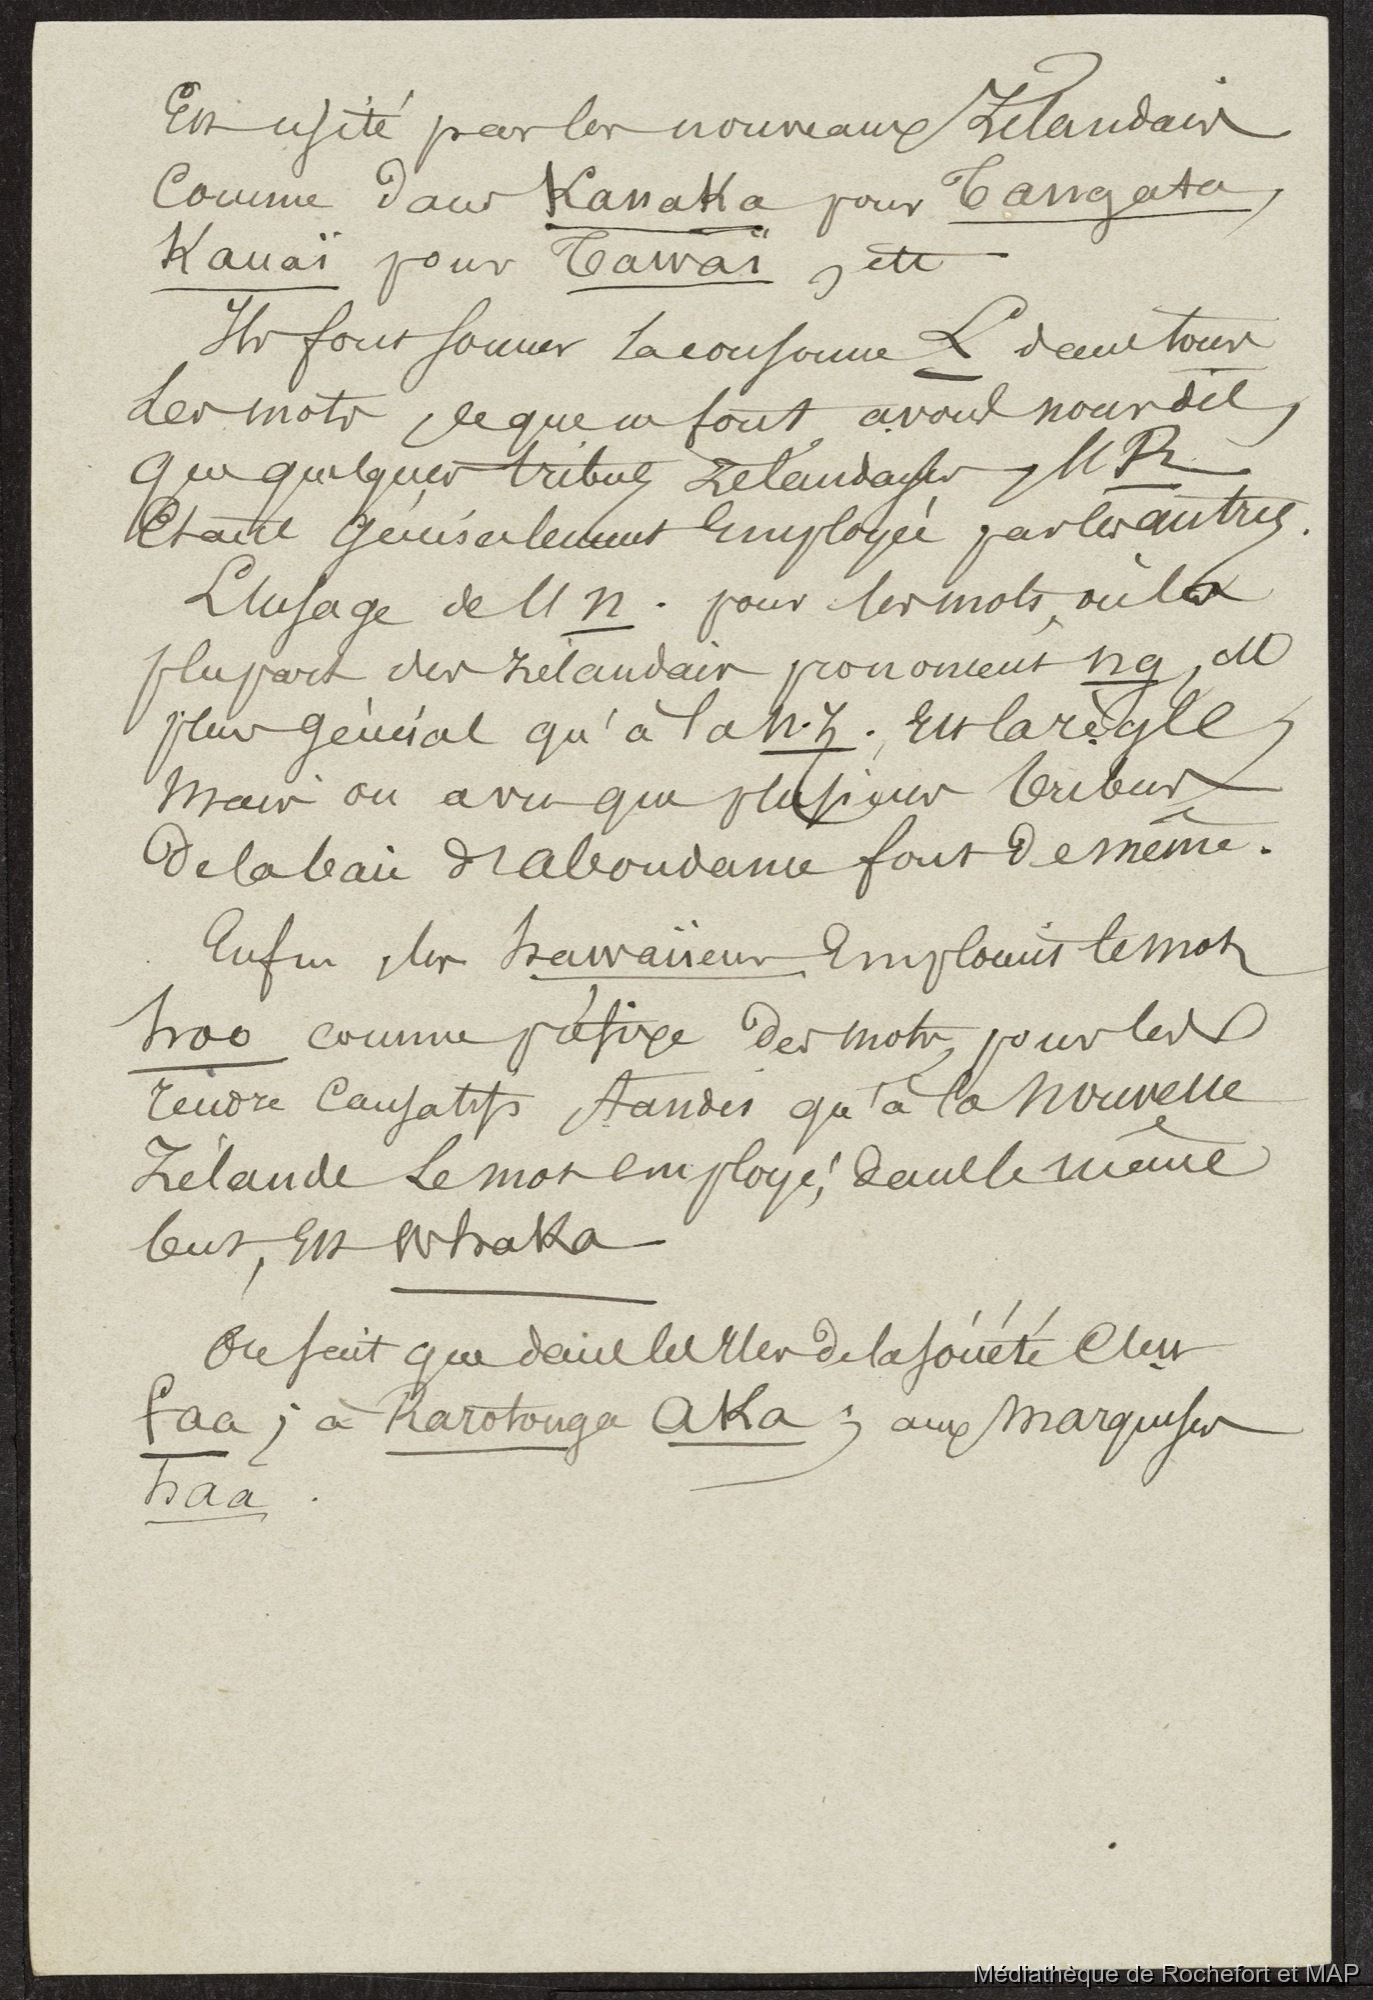 Est usité par les nouveaux Zélandais
Comme dans Kanaka pour Tangata,
Kauaï pour Tawaï, etc
Ils font sonner la consonne L dans tous
les mots, ce que ne font, avons nous dit,
que quelques tribus Zélandaises, l'R
étant généralement employée par les autres.
L'usage de l'n. pour les mots, où la
plupart des Zélandais prononcent ng, est
plus général qu'à la N.Z., est la règle,
Mais on a vu que plusieurs tribus
De la baie d'abondance font de même.
Enfin, les hawaïiens Emploient le mot
hoo comme préfixe des mots, pour les
rendre Causatifs, tandis qu'à la Nouvelle
Zélande le mot employé, dans le même
but, Est Whaka
On sait que dans les Iles de la société C'est
faa; à Rarotonga aka; aux Marquises
haa.
Médiathèque de Rochefort et MAP